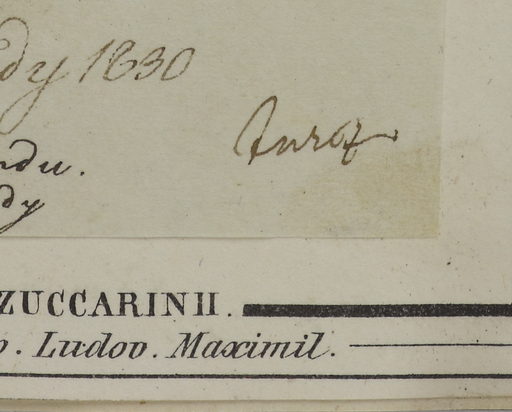 dy 1830
ndu.
dy
ZUCCARINII.
o. Ludov. Maximil.